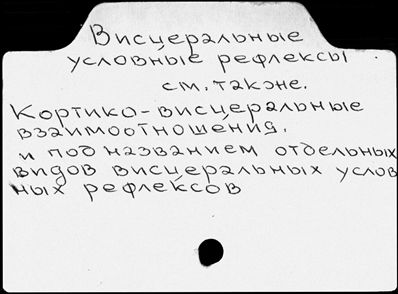 Висцеральные
условные рефлексы
см. также.
Кортико-висцеральные
взаимоотношения.
и под названием отдельных
видов висцеральных услов
ных рефлексов